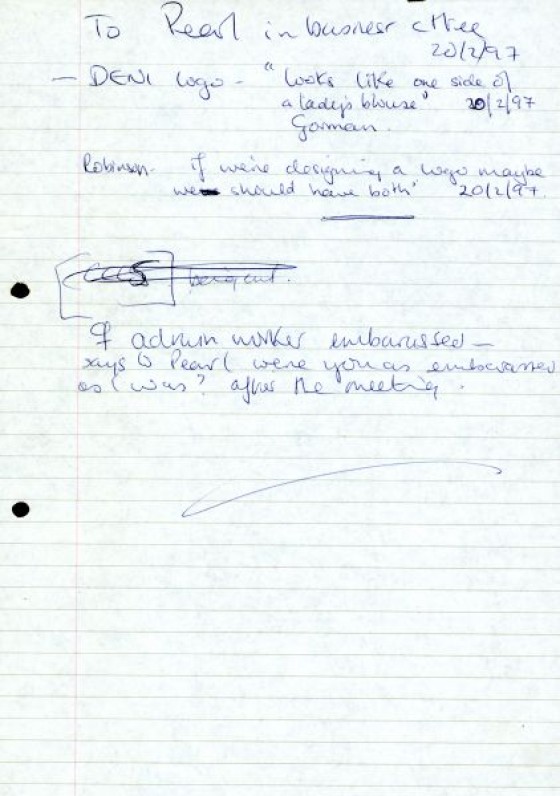 To Pearl in business cttee
20/2/97
— DENI logo - "looks like one side of
a lady's blouse" 20/2/97
Gorman.
Robinson - If we're designing a logo maybe
we should have both' 20/2/97.
If admin worker embarussed —
says to Pearl were you as embarassed
as I was? after the meeting.